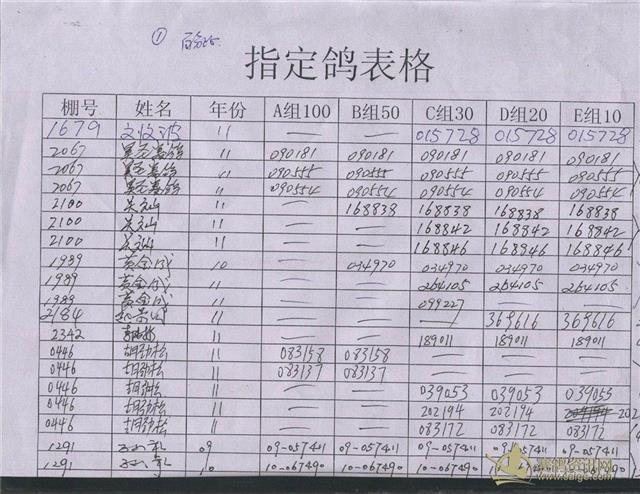 ① 百分比
指定鸽表格
棚号 姓名 年份 A组100 B组50 C组30 D组20 E组10
1679 11 — — 015728 015728 015728
2067 11 090181 090181 090181 090181 090181
2067 11 090555 090555 090555 090555 090555
2067 11 090554 090554 090554 090554 090554
2100 11 — 168838 168838 168838 168838
2100 11 — — 168842 168842 168842
2100 11 — — 168846 168846 168846
1989 10 — 034970 034970 034970 034970
1989 11 — — 264105 264105 264105
1989 11 — — 099227 — —
2184 11 — — — 369616 369616
2342 11 — — 189011 189011 189011
0446 胡劲松 11 083158 083158 — — —
0446 胡劲松 11 083137 083137 — — —
0446 胡劲松 11 — — 039053 039053 039053
0446 胡劲松 11 — — 202194 202194
0446 胡劲松 11 — — 083172 083172 083172
1291 09 09-057411 09-057411 09-057411 09-057411 09-057411
1291 10 10-067490 10-067490 10-067490 10-067490